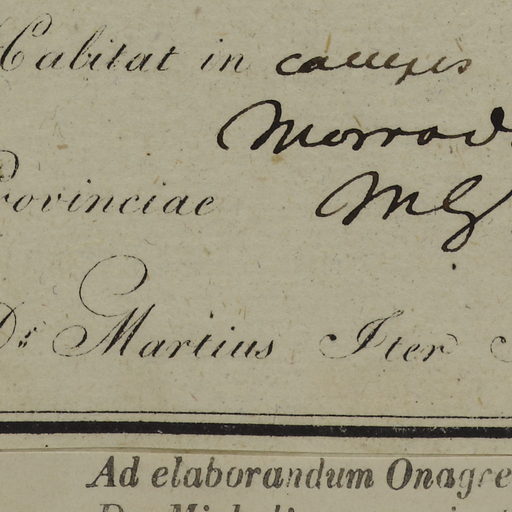 Habitat in campis
Morro d
Provinciae MG
Dr. Martius Iter
Ad elaborandum Onagre
Dr. Micheli